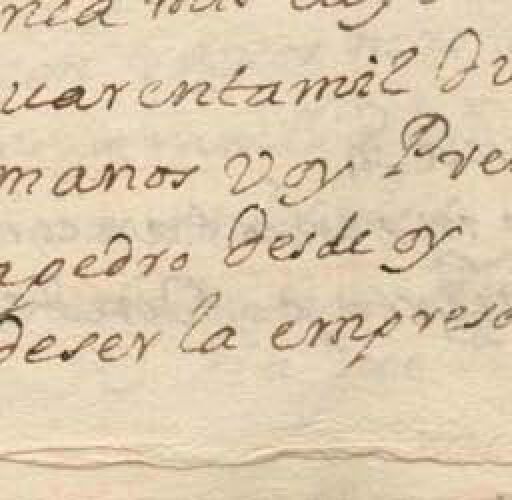 uarentamil du
manos voy Pre
npedro desde oy
deser la empresa